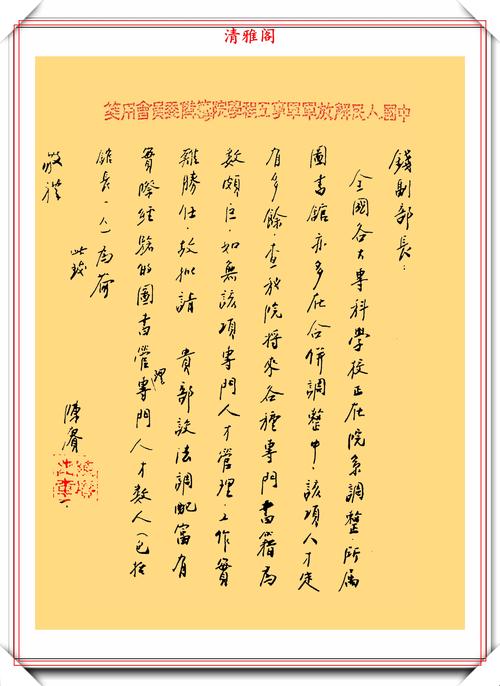 清雅阁
中國人民解放軍軍事工程學院籌備委員會用箋
錢副部長：
全國各大專科學校正在院系調整．所屬
圖書館亦多在合併調整中．該項人才定
有多餘．查我院將來各種專門書籍為
數頗巨．如無該項專門人才管理．工作實
難勝任．故擬請 貴部設法調配富有
實際經驗的圖書管理專門人才數人（包括
館長一人）為荷
此致
敬禮
陳賡